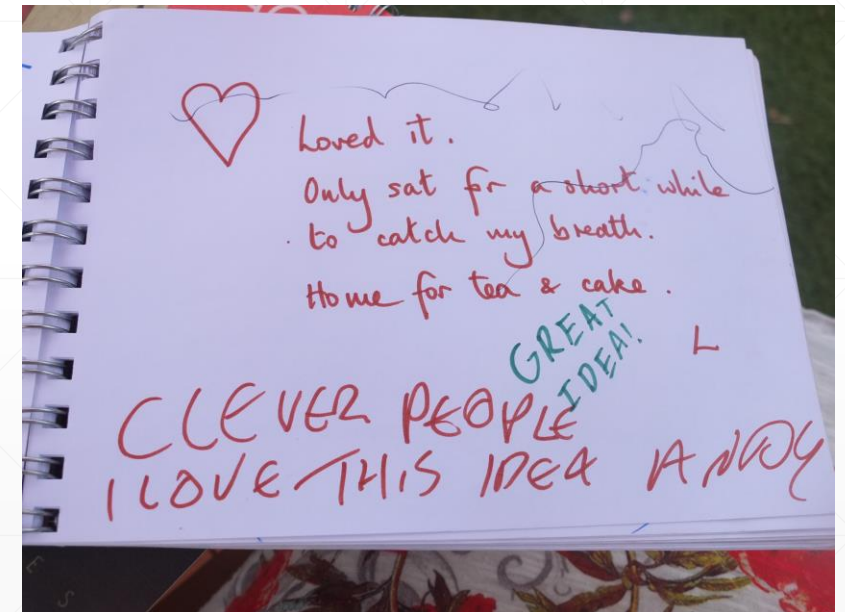 Loved it.
Only sat for a short while
to catch my breath.
Home for tea & cake.
L
GREAT
IDEA!
CLEVER PEOPLE
I LOVE THIS IDEA ANDY